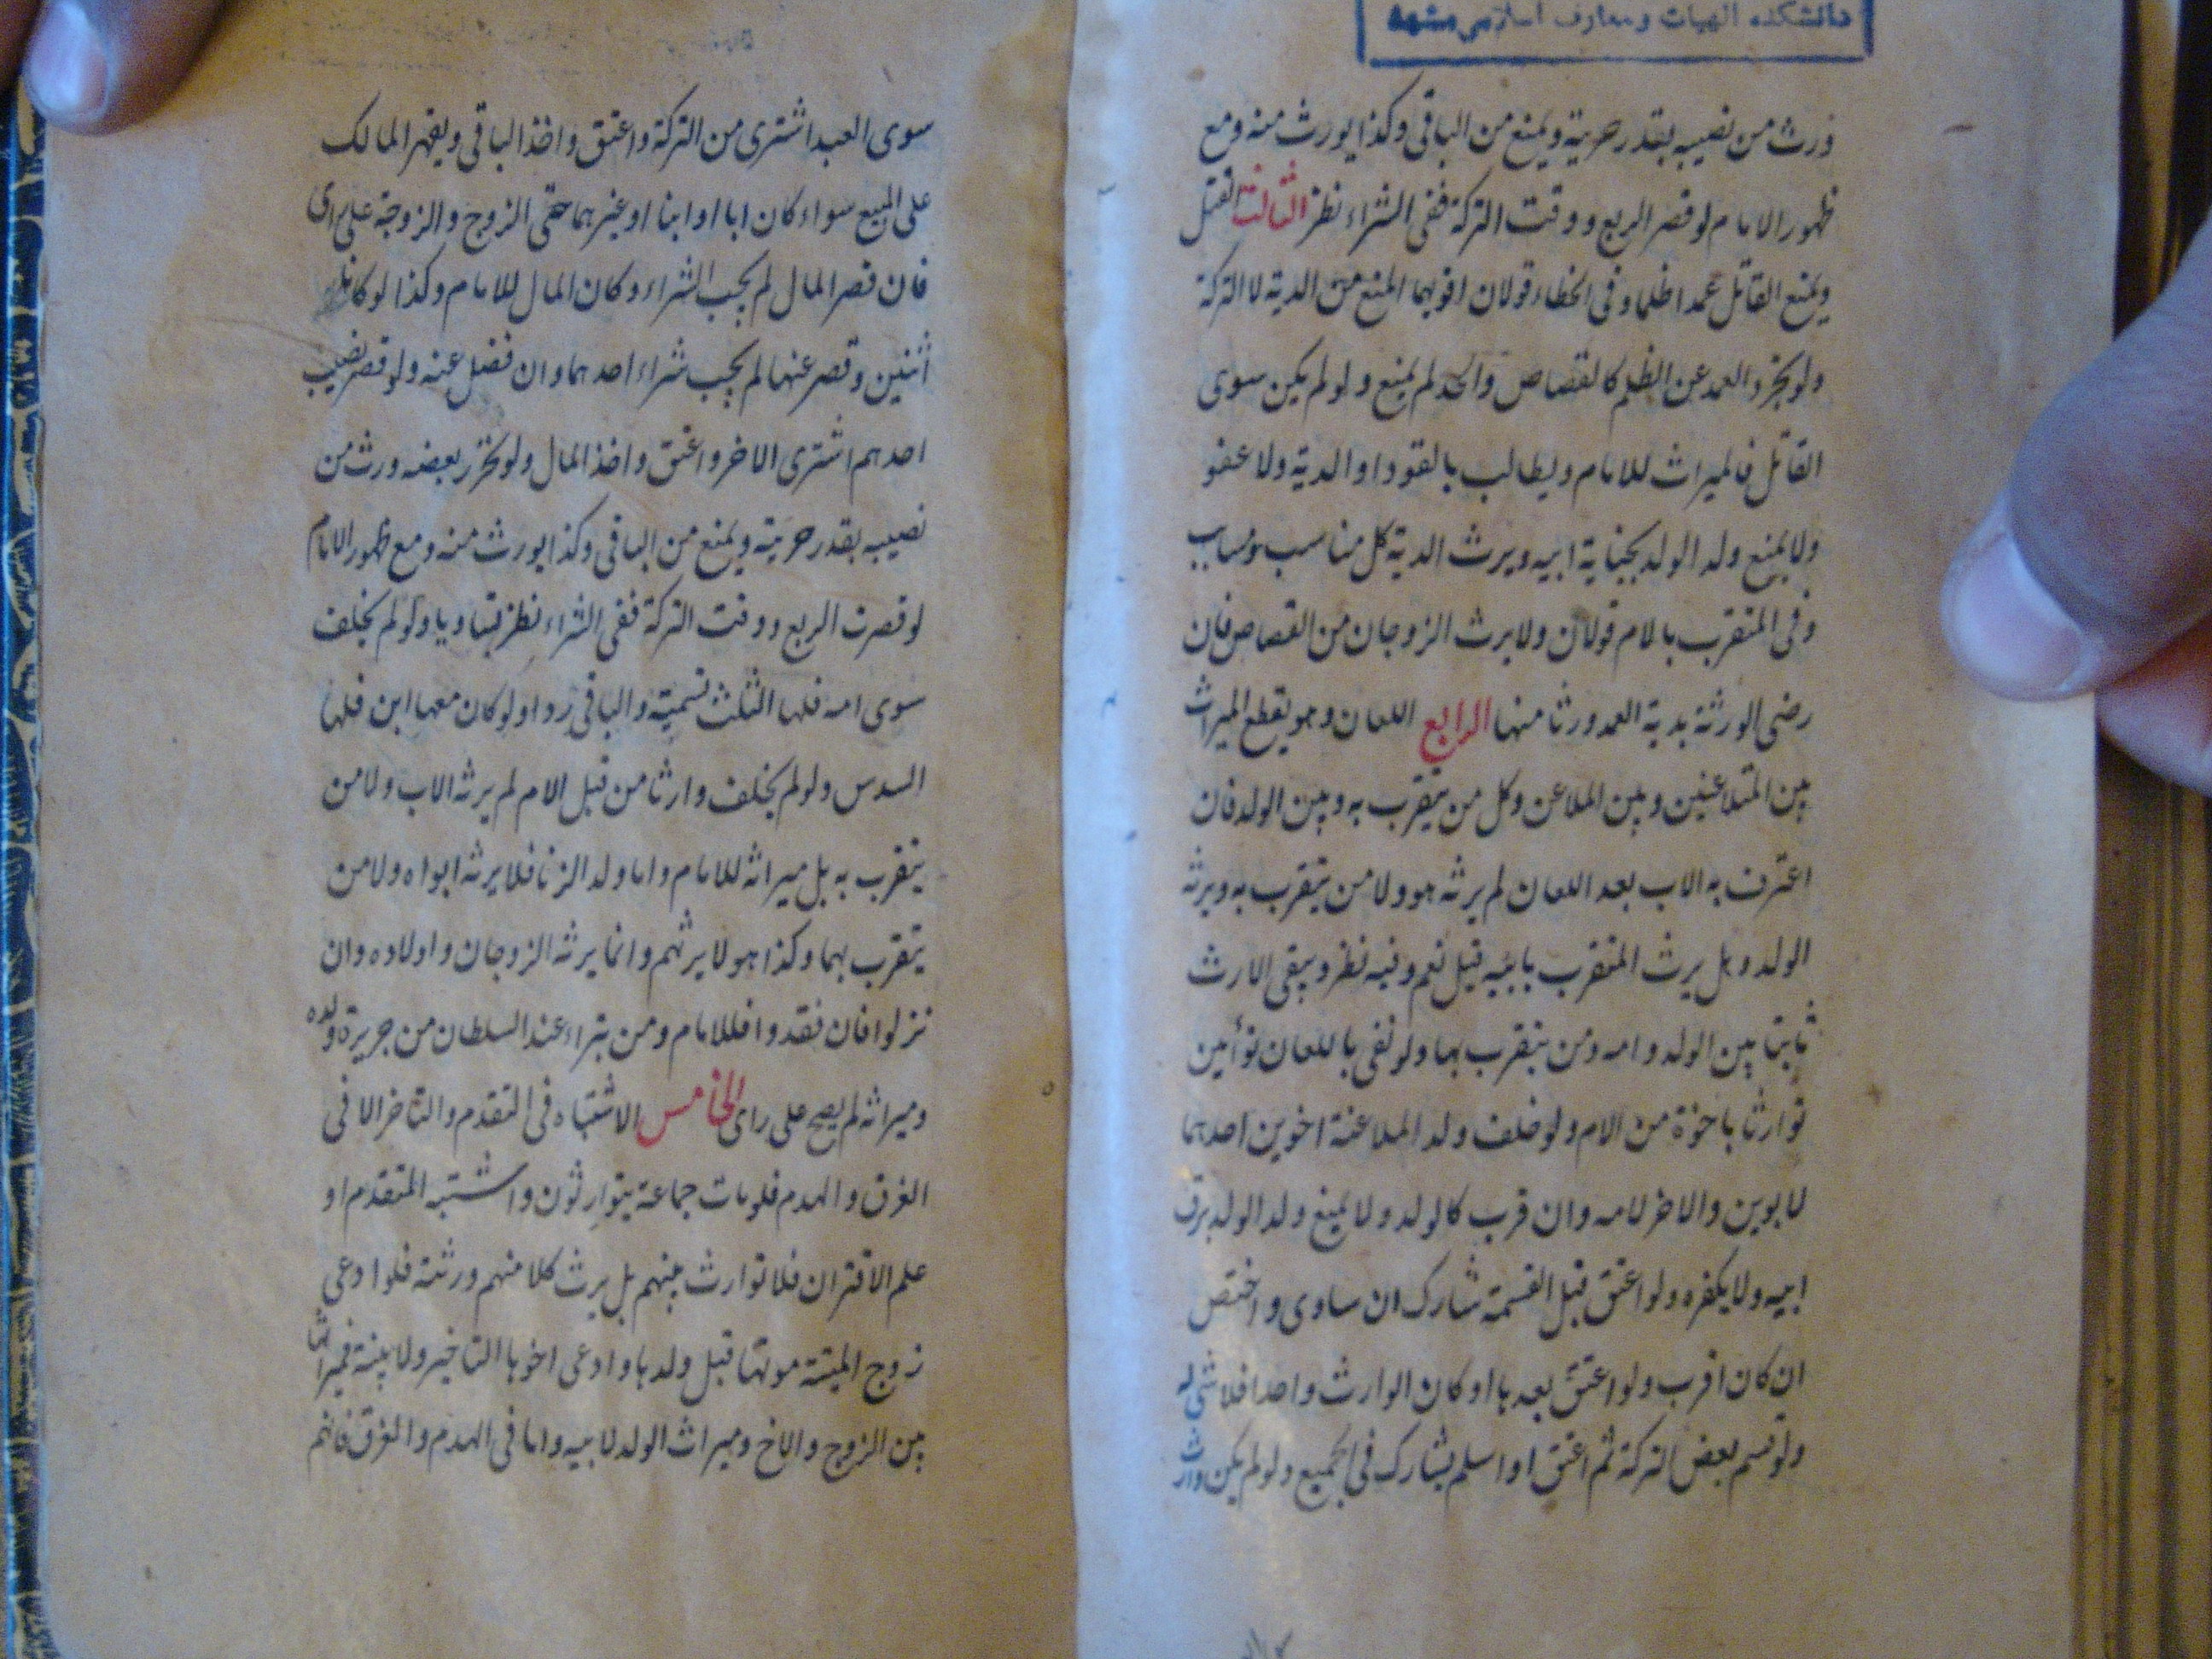 دانشكده الهيات ومعارف اسلامى مشهد
ورث من نصيبه بقدر حرية ويمنع من الباقى وكذا يورث منه ومع
ظهور الامام لو قصر الربع ووقت التركة ففى الشراء نظر الثالث القتل
ويمنع القاتل عمدا ظلما وفى الخطاء قولان اقويهما المنع من الدية لا التركة
ولو تجرد العمد عن الظلم كالقصاص والحد لم يمنع ولو لم يكن سوى
القاتل فالميراث للامام ويطالب بالقود او الدية ولا عفو
ولا يمنع ولد الولد بجناية ابيه ويرث الدية كل مناسب ومسابب
وفى المتقرب بالام قولان ولا يرث الزوجان من القصاص فان
رضى الورثة بدية العمد ورثا منها الرابع اللعان وهو يقطع الميراث
بين المتلاعنين وبين الملاعن وكل من يتقرب به وبين الولد فان
اعترف به الاب بعد اللعان لم يرثه هو ولا من يتقرب به ويرثه
الولد وهل يرث المتقرب بابيه قيل نعم وفيه نظر ويبقى الارث
ثابتا بين الولد وامه ومن يتقرب بها ولو نفى باللعان توأمين
توارثا باخوة من الام ولو خلف ولد الملاعنة اخوين احدهما
لابوين والاخر لامه وان قرب كالولد ولا يمنع ولد الولد برق
ابيه ولا بكفره ولو اعتق قبل القسمة شارك ان ساوى واختص
ان كان اقرب ولو اعتق بعدها او كان الوارث واحدا فلا شئ له
ولو قسم بعض التركة ثم اعتق او اسلم يشارك فى الجميع ولو لم يكن وارث
سوى العبد اشترى من التركة واعتق واخذ الباقى ويقهر المالك
على المبيع سواء كان ابا او ابنا او غيرهما حتى الزوج والزوجة على راى
فان قصر المال لم يجب الشراء وكان المال للامام وكذا لو كانا
اثنين وقصر عنهما لم يجب شراء احدهما وان فضل عنه ولو قصر نصيب
احدهم اشترى الاخر واعتق واخذ المال ولو تحرر بعضه ورث من
نصيبه بقدر حريته ويمنع من الباقى وكذا يورث منه ومع ظهور الامام
لو قصرت الربع ووقت التركة ففى الشراء نظر يتساويا ولو لم يخلف
سوى امه فلها الثلث تسمية والباقى ردا ولو كان معها ابن فلها
السدس ولو لم يخلف وارثا من قبل الام لم يرثه الاب ولا من
يتقرب به بل ميراثه للامام واما ولد الزنا فلا يرثه ابواه ولا من
يتقرب بهما وكذا هو لا يرثهم وانما يرثه الزوجان واولاده وان
نزلوا فان فقدوا فللامام ومن تبراء عند السلطان من جريرة ولده
وميراثه لم يصح على راى الخامس الاشتباه فى التقدم والتاخر الا فى
الغرق والهدم فلو مات جماعة يتوارثون واشتبه المتقدم او
علم الاقتران فلا توارث بينهم بل يرث كلا منهم ورثته فلو ادعى
زوج الميتة موتها قبل ولدها وادعى اخوها التاخير ولا بينة فميراثها
بين الزوج والاخ وميراث الولد لابيه واما فى الهدم والغرق فانهم